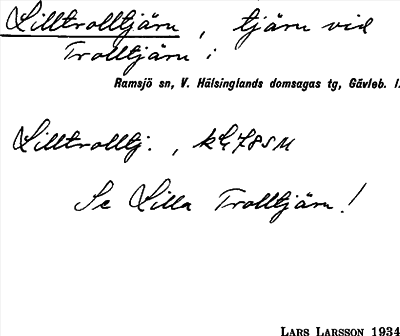 Lilltrolltjärn, tjärn vid
Trolltjärn i
Ramsjö sn, V. Hälsinglands domsagas tg, Gävleb. l.
Lilltrolltj.,
Se Lilla Trolltjärn!
LARS LARSSON 1934